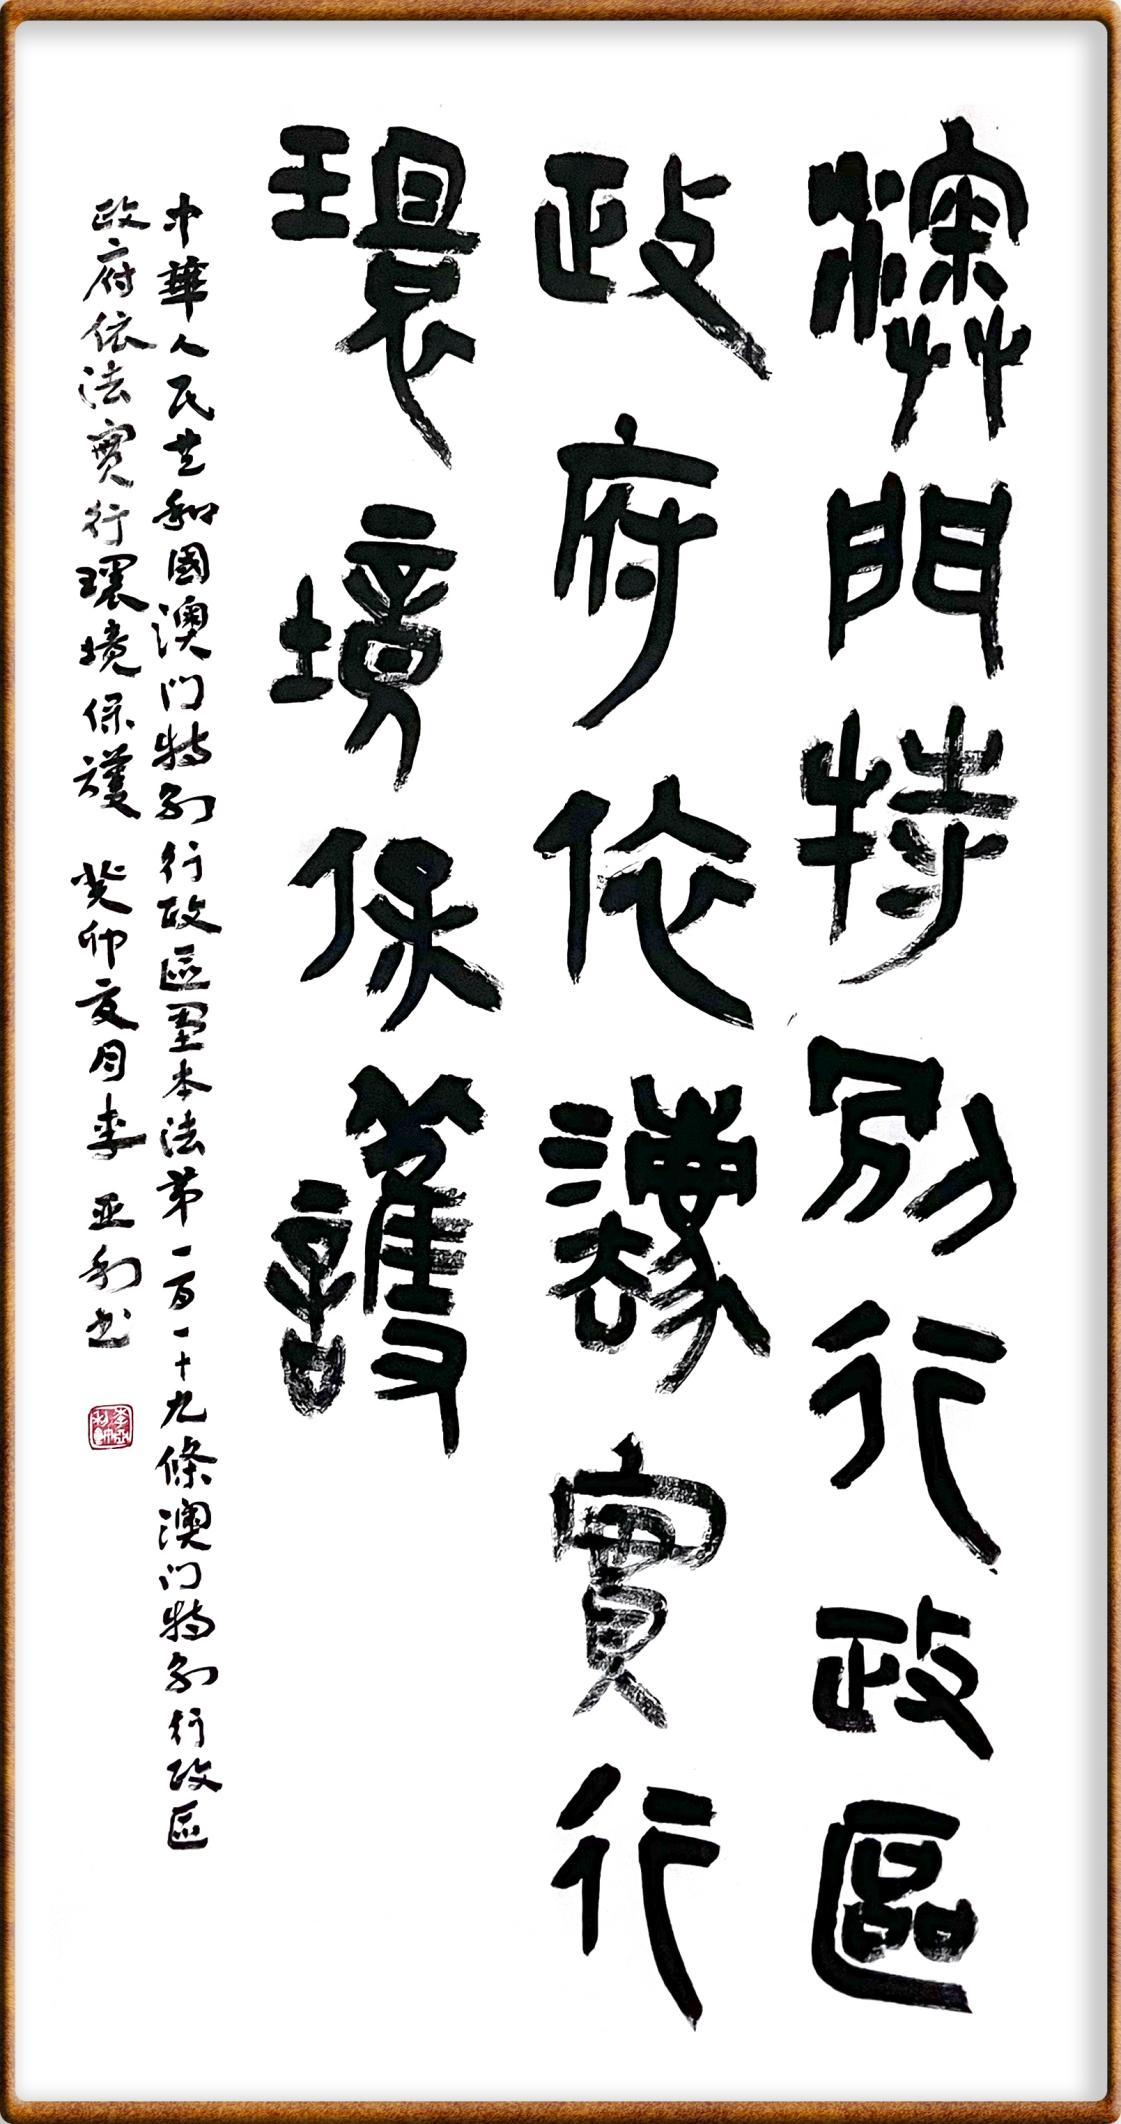 澳門特別行政區
政府依灋實行
環境保護
中華人民共和國澳门特别行政區基本法第一百一十九條澳门特别行政區
政府依法實行環境保護 癸卯夏月李亚利书